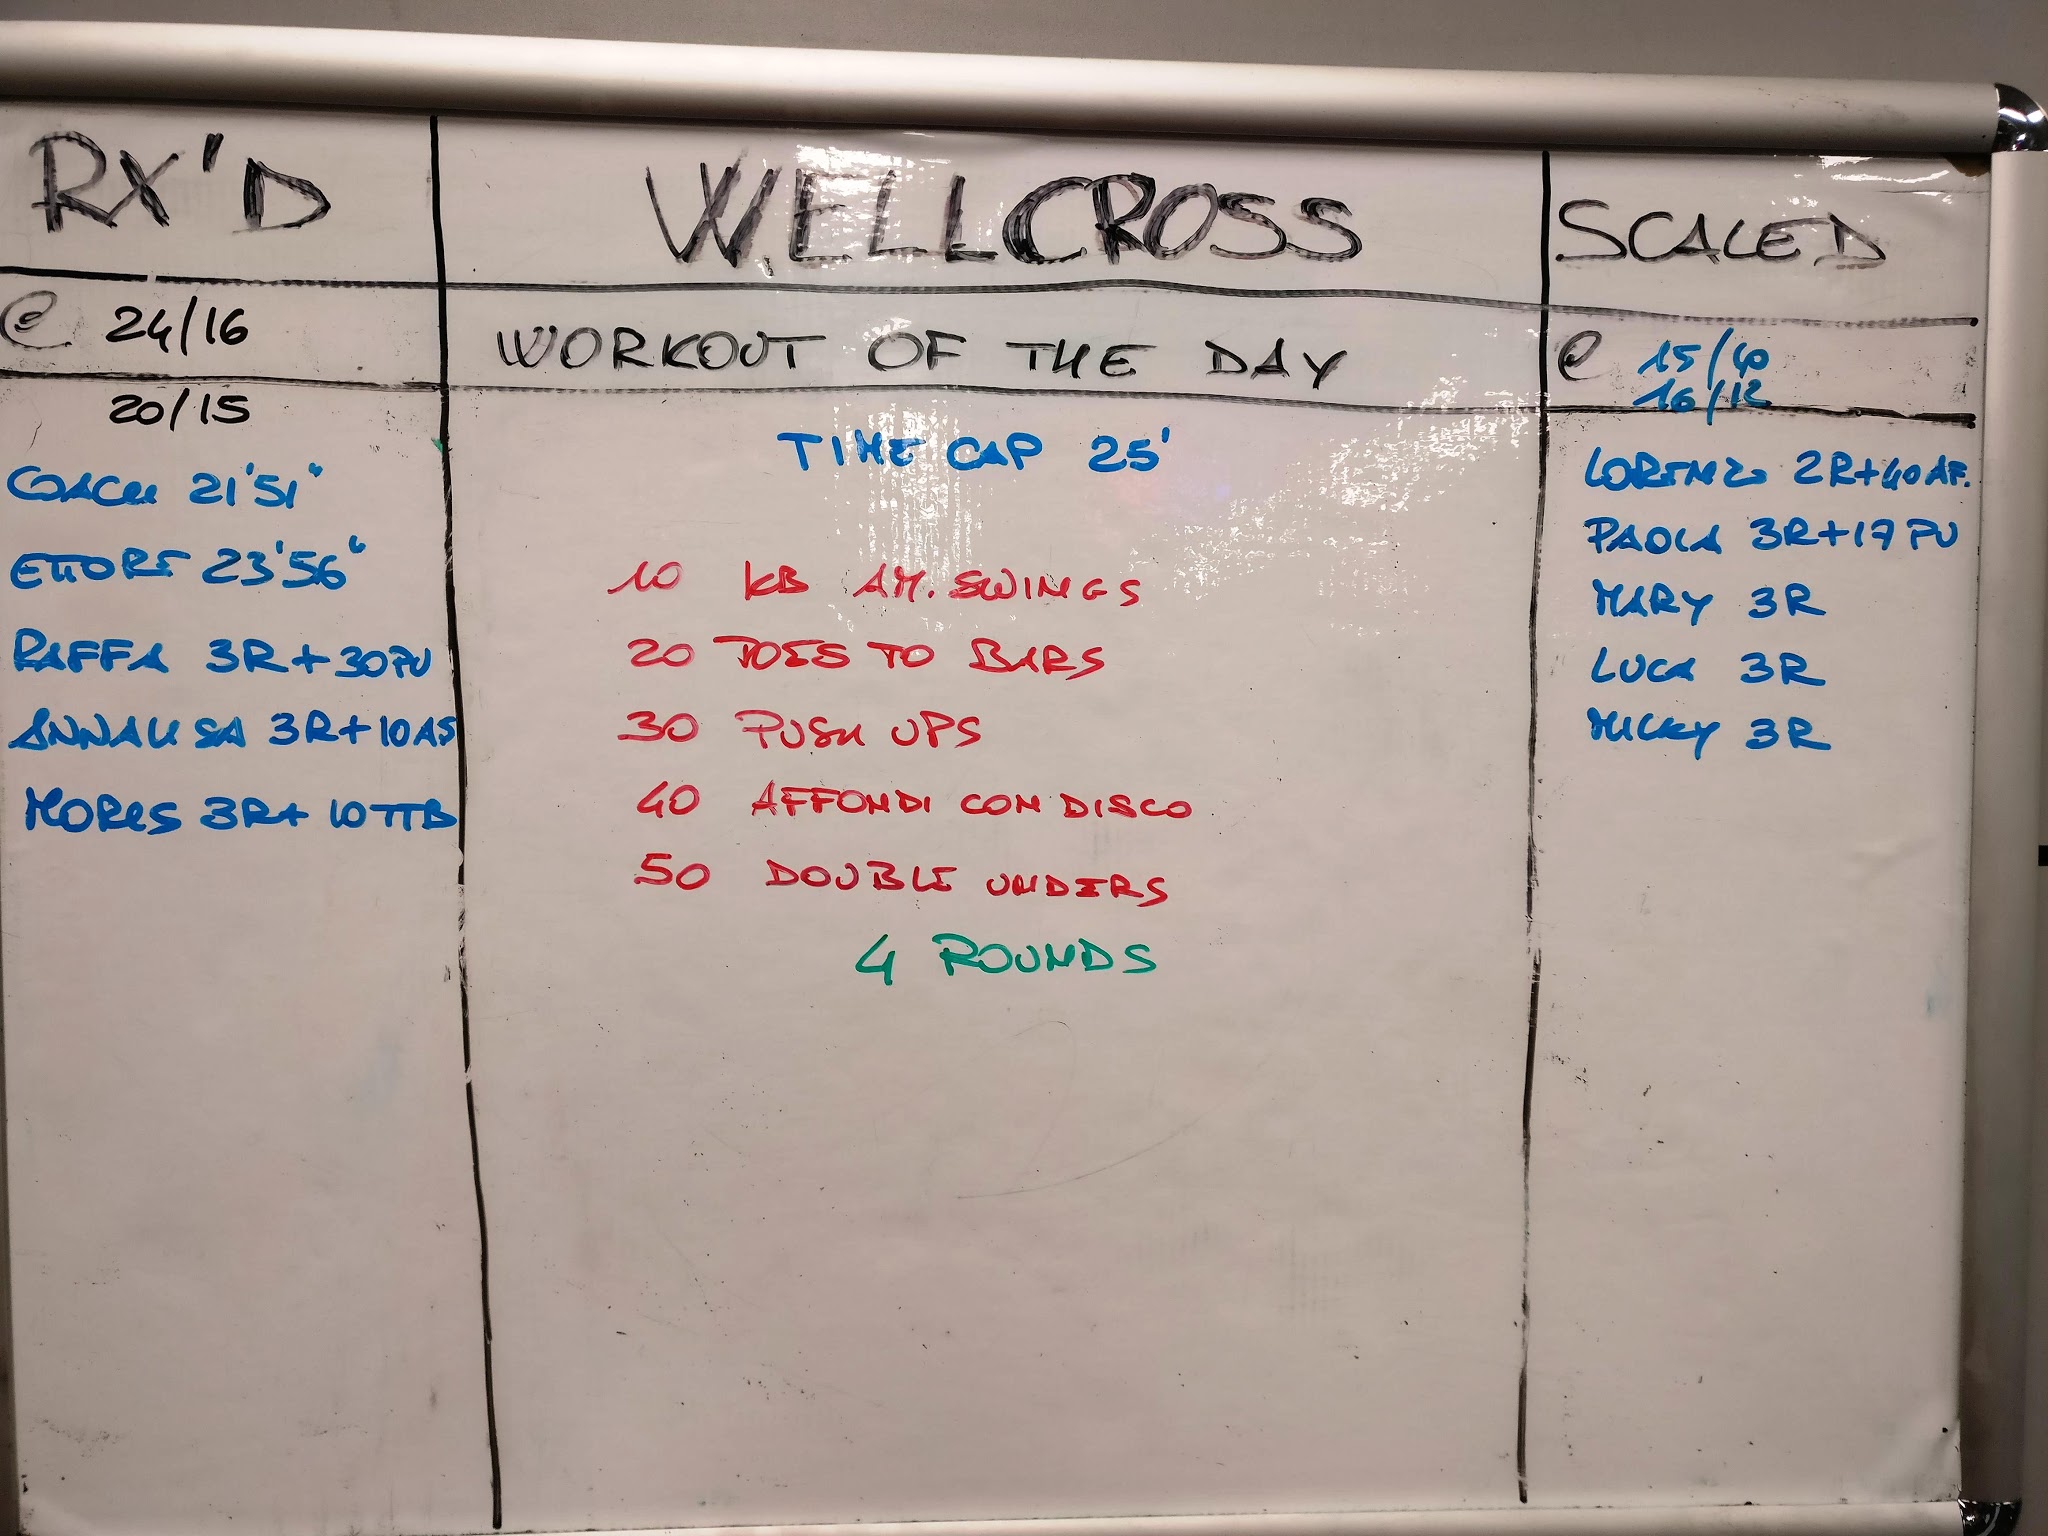 RX'D
@ 24/16
20/15
COACH 21'51"
ETTORE 23'56"
RAFFA 3R+30PU
ANNALISA 3R+10AS
MORRIS 3R+10TTB
WELLCROSS
WORKOUT OF THE DAY
TIME CAP 25'
10 KB AM. SWINGS
20 TOES TO BARS
30 PUSH UPS
40 AFFONDI CON DISCO
50 DOUBLE UNDERS
4 ROUNDS
SCALED
@ 15/10
16/12
LORENZO 2R+40AF.
PAOLA 3R+17PU
MARY 3R
LUCA 3R
MICKY 3R